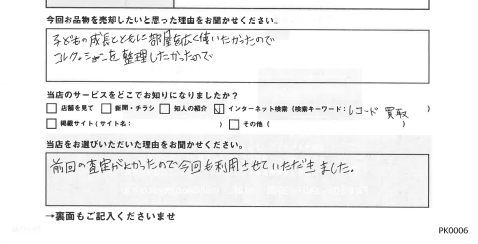 今回お品物を売却したいと思った理由をお聞かせください。
子どもの成長とともに部屋を広く使いたかったので
コレクションを整理したかったので
当店のサービスをどこでお知りになりましたか？
□店舗を見て □新聞・チラシ □知人の紹介 ☑インターネット検索（検索キーワード：レコード 買取 ）
□掲載サイト（サイト名： ） □その他（ ）
当店をお選びいただいた理由をお聞かせください。
前回の査定がよかったので今回も利用させていただきました。
→裏面もご記入くださいませ
PK0006